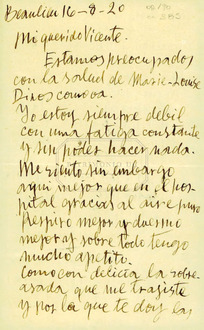 Beaulieu 16-8-20
Mi querido Vicente.
Estamos preocupados
con la salud de Marie-Louise
Dinos como va.
Yo estoy siempre debil
con una fatiga constante
y sin poder hacer nada.
Me siento sin embargo
aqui mejor que en el hos
pital gracias al aire puro
Respiro mejor y duermo
mejor y sobre todo tengo
mucho apetito.
Como con delicia la sobre-
asada que me trajiste
y por la que te doy las